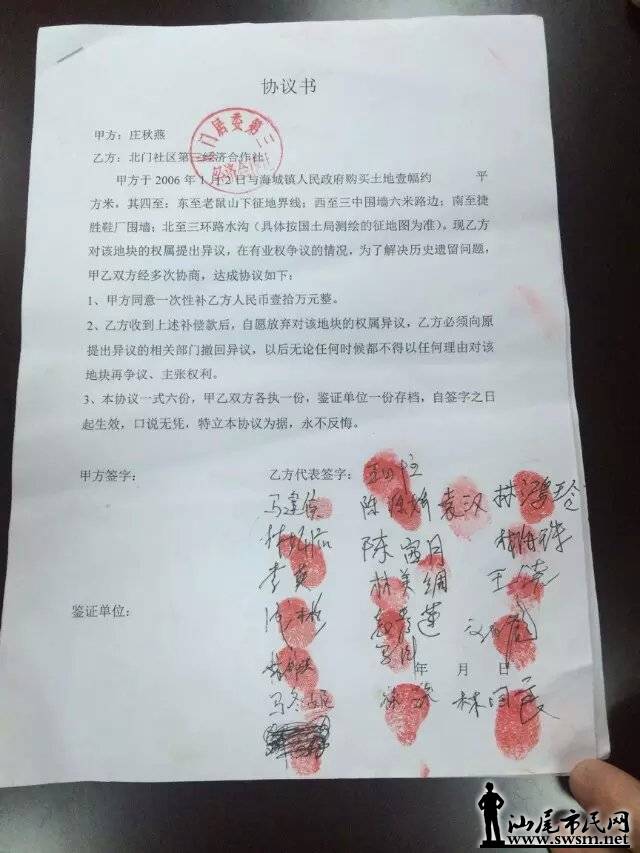 协议书
甲方：庄秋燕
乙方：北门社区第三经济合作社
甲方于 2006 年 1 月 2 日与海城镇人民政府购买土地壹幅约 平
方米，其四至：东至老鼠山下征地界线；西至三中围墙六米路边；南至捷
胜鞋厂围墙；北至三环路水沟（具体按国土局测绘的征地图为准）。现乙方
对该地块的权属提出异议，在有业权争议的情况，为了解决历史遗留问题，
甲乙双方经多次协商，达成协议如下：
1、甲方同意一次性补乙方人民币壹拾万元整。
2、乙方收到上述补偿款后，自愿放弃对该地块的权属异议，乙方必须向原
提出异议的相关部门撤回异议，以后无论任何时候都不得以任何理由对该
地块再争议、主张权利。
3、本协议一式六份，甲乙双方各执一份，鉴证单位一份存档，自签字之日
起生效，口说无凭，特立本协议为据，永不反悔。
甲方签字： 乙方代表签字：
袁汉
林美
鉴证单位：
年 月 日
马冬
汕尾市民网
www.swsm.net